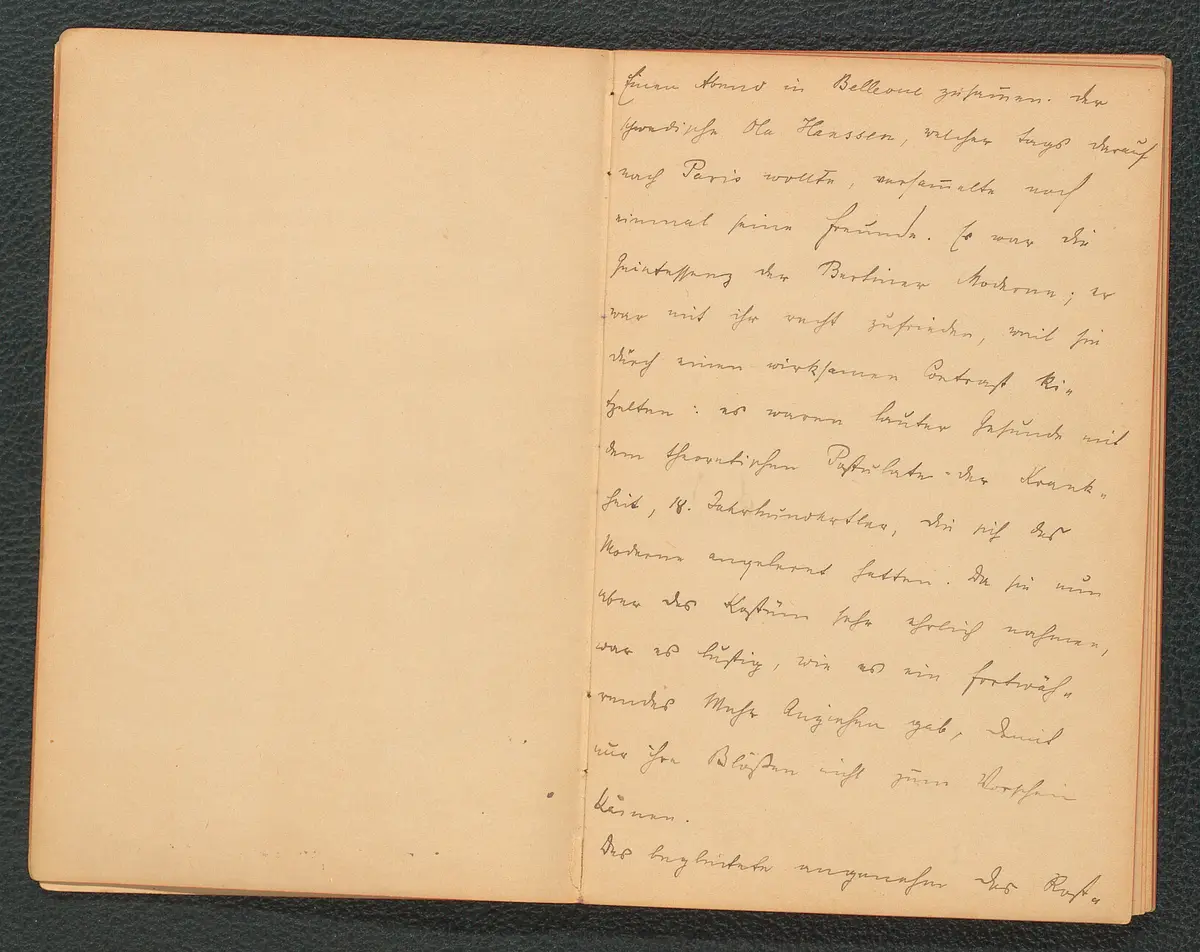 Einen Abend in Bellevue zusam̅en. Der
schwedische Ola Hansson, welcher tags darauf
nach Paris wollte, versam̅elte noch
einmal seine Freunde. Es war die
Quintessenz der Berliner Moderne; er
war mit ihr recht zufrieden, weil sie
durch einen wirksamen Contrast ki-
tzelten: es waren lauter Gesunde mit
dem theoretischen Postulate der Krank-
heit, 18. Jahrhundertler, die sich das
Moderne angelernt hatten. Da sie nun
aber das Kostüm sehr ehrlich nahmen,
war es lustig, wie es ein fortwäh-
rendes Mehr Anziehen gab, damit
nur ihre Blößen nicht zum Vorschein
kämen.
Das begleitete angenehm das Rost-